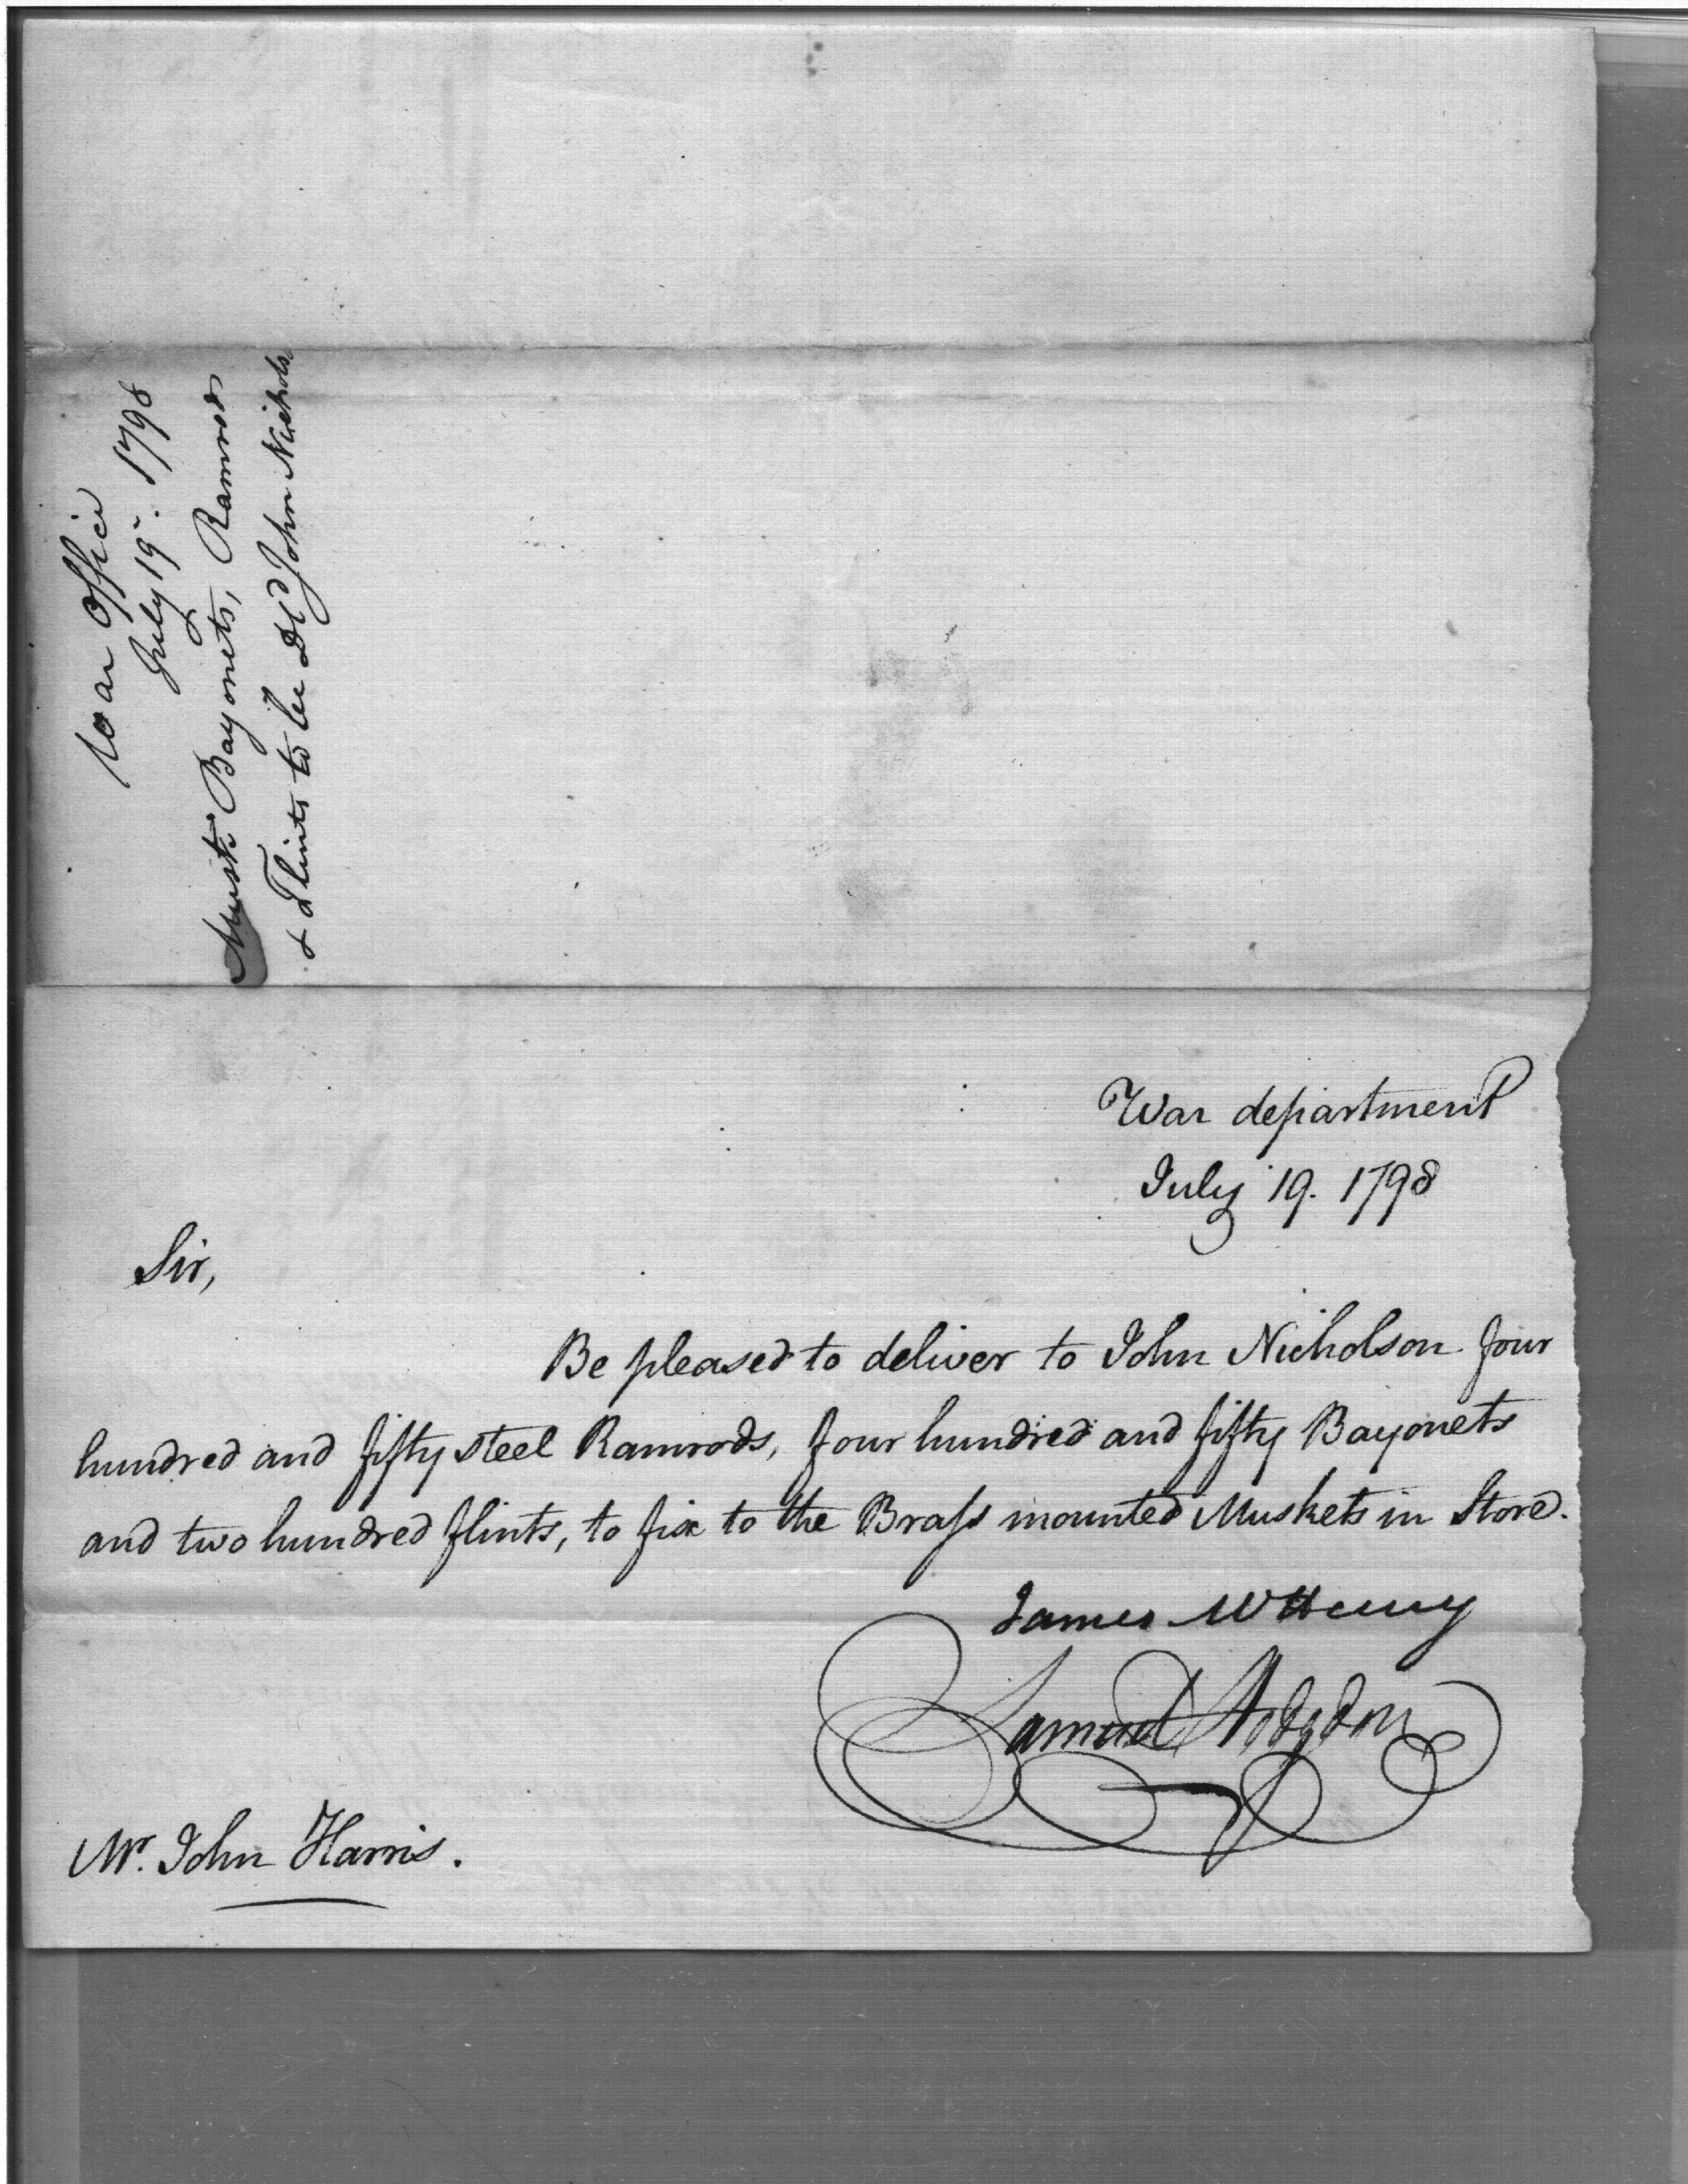 War Office
July 19. 1798
Musk.t Bayonets, Ramrods
& Flints to be Dld John Nichols
War department
July 19. 1798
Sir,
Be pleased to deliver to John Nicholson four
hundred and fifty steel Ramrods, four hundred and fifty Bayonets
and two hundred flints, to fix to the Brass mounted Muskets in Store.
James McHenry
Samuel Hodgdon
Mr. John Harris.